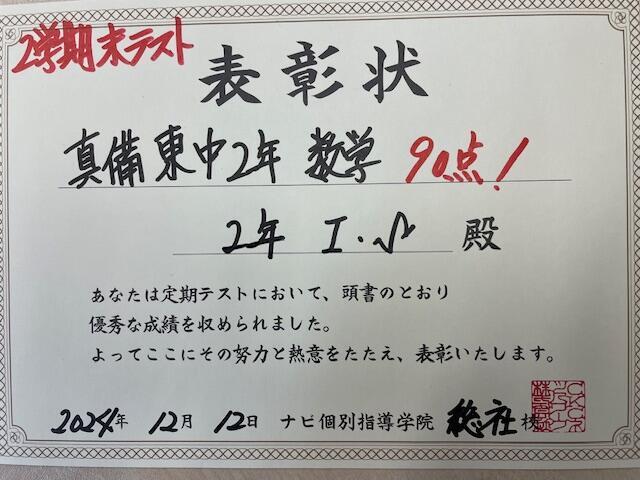 2学期末テスト
表彰状
真備東中2年 数学 90点!
2年 I.S 殿
あなたは定期テストにおいて、頭書のとおり
優秀な成績を収められました。
よってここにその努力と熱意をたたえ、表彰いたします。
2024年 12月 12日 ナビ個別指導学院 総社校